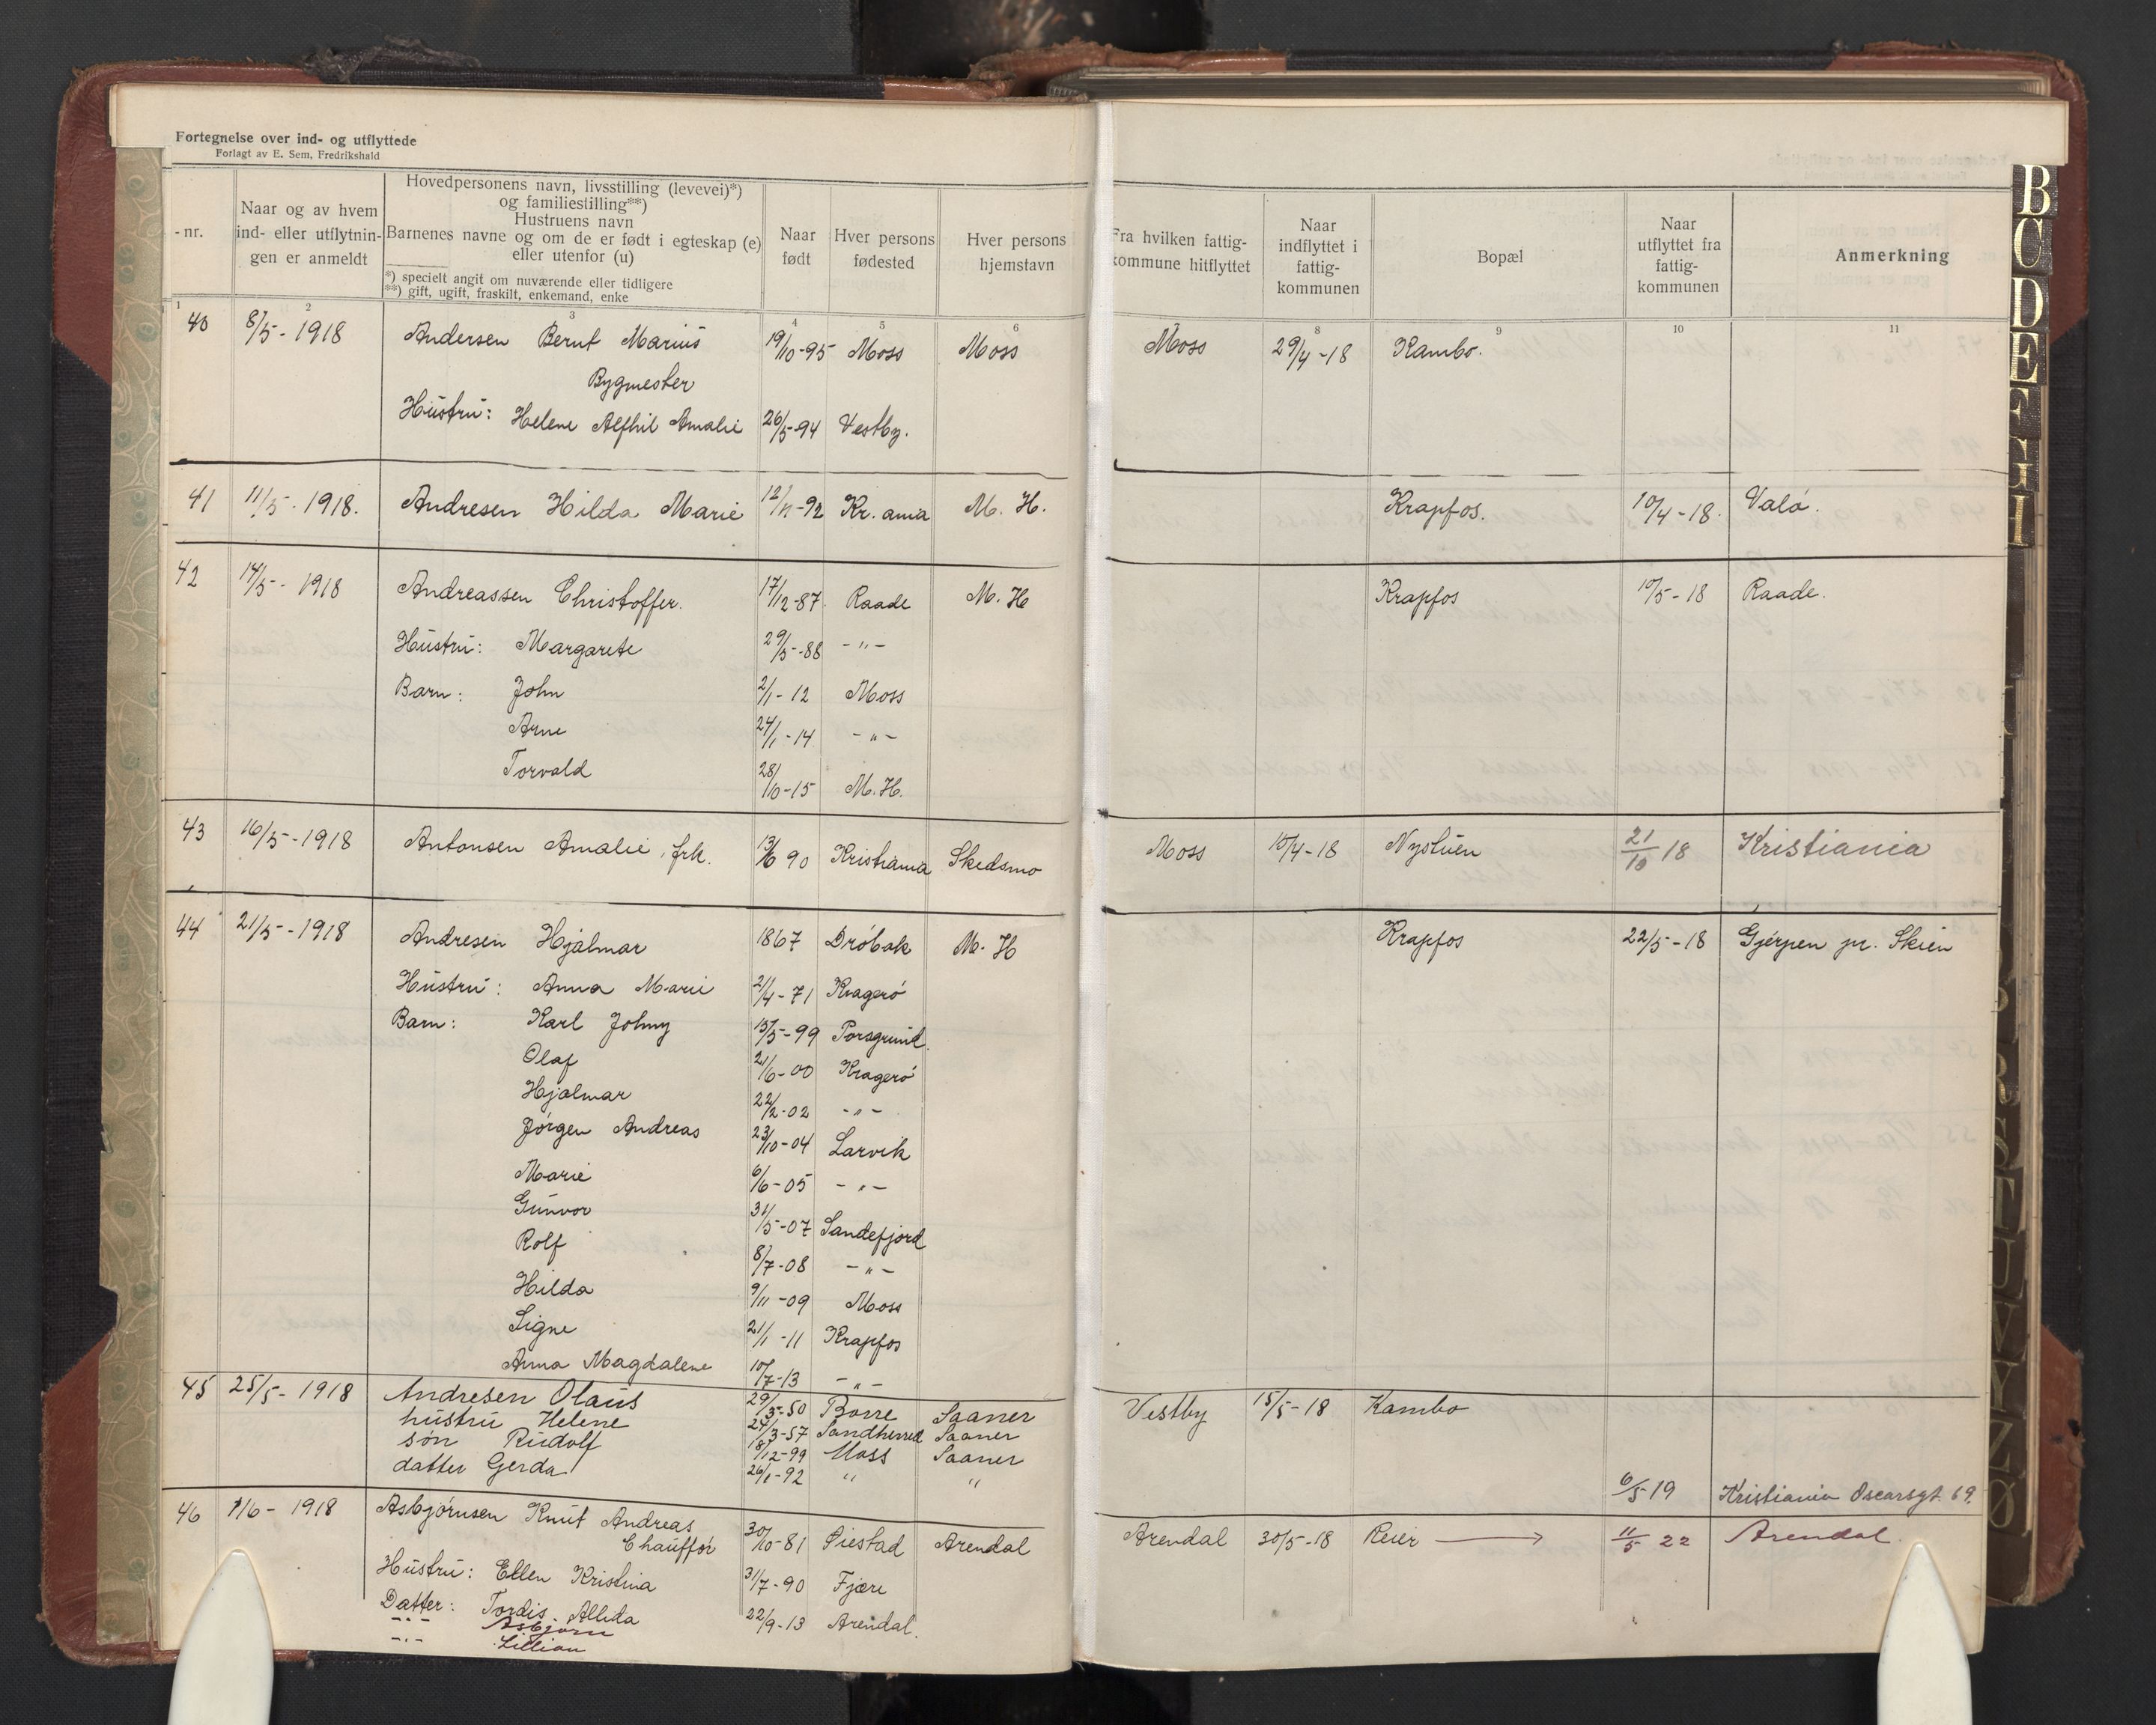 Fortegnelse over ind- og utflyttede
Forlagt av E. Sem, Fredrikshald
-nr.
Naar og av hvem
ind- eller utflytnin-
gen er anmeldt
Hovedpersonens navn, livsstilling (levevei)*)
og familiestilling**)
Hustruens navn
Barnenes navne og om de er født i egteskap (e)
eller utenfor (u)
*) specielt angit om nuværende eller tidligere
**) gift, ugift, fraskilt, enkemand, enke
Naar
født
Hver persons
fødested
Hver persons
hjemstavn
Fra hvilken fattig-
kommune hitflyttet
Naar
indflyttet i
fattig-
kommunen
Bopæl
Naar
utflyttet fra
fattig-
kommunen
Anmerkning
1 2 3 4 5 6 7 8 9 10 11
40 8/5- 1918 Andersen Bernt Marius 19/10-95 Moss Moss Moss 29/4-18 Kambo.
Bygmester
Hustru: Helene Alfhil Amalie 26/5-94 Vestby.
41 11/5- 1918. Andresen Hilda Marie 12/11-92 Kr.ania M. H. Krapfos. 10/4-18. Valø.
42 14/5- 1918 Andreassen Christoffer. 17/12-87. Raade M. H Krapfos 10/5-18 Raade.
Hustru: Margarete 29/5-88 -"-
Barn: John 2/1-12 Moss
Arne 24/1-14 -"-
Torvald 28/10-15 M.H.
43 16/5-1918 Antonsen Amalie, frk. 13/6 90 Kristiania Skedsmo Moss 15/4-18 Nystuen 21/10 18 Kristiania
44 21/5-1918 Andresen Hjalmar 1867 Drøbak M. H Krapfos 22/5-18 Gjerpen pr. Skien
Hustru: Anna Marie 2/4-71 Kragerø
Barn: Karl Johny 15/5-99 Porsgrund.
Olaf 21/6-00 Kragerø
Hjalmar 22/2-02 -"-
Jørgen Andreas 23/10-04 Larvik
Marie 6/6-05 -"-
Gunvor 31/5-07 Sandefjord
Rolf 8/7-08 -"-
Hilda 9/11-09 Moss
Signe 21/1-11 Krapfos
Anna Magdalene 10/7-13 -"-
45 25/5-1918 Andresen Olaus 29/3-50 Borre Saaner Vestby 15/5-18 Kambo
hustru Helene 24/3-57 Sandherred Saaner
søn Rudolf 18/12-99 Moss Saaner
datter Gerda 26/1-92 " "
6/5-19 Kristiania Oscarsgt. 69.
46 1/6-1918 Asbjørnsen Knut Andreas 30/10-81 Øiestad Arendal Arendal 30/5-18 Reier → 11/5 22 Arendal.
Chauffør
Hustru: Ellen Kristina 31/7-90 Fjære
Datter: Tordis Allida 22/9-13 Arendal.
-"- Asbjørn
-"- Lillian
B
C
D
E
F
G
I
R
S
T
U
V
Y
Z
Ø